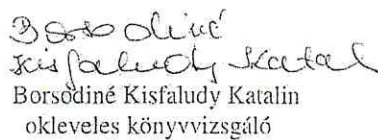 Borsodiné
Kisfaludy Katal
Borsodiné Kisfaludy Katalin
okleveles könyvvizsgáló